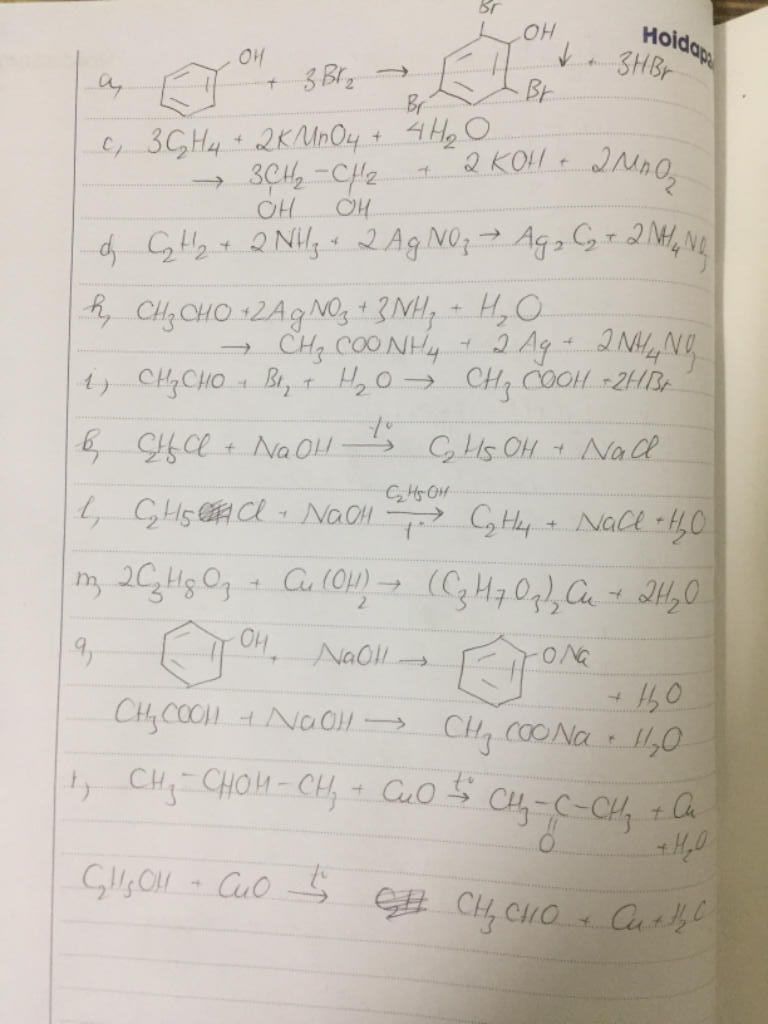 Hoidap
a, OH + 3Br2 → Br OH Br Br ↓ + 3HBr
c, 3C2H4 + 2KMnO4 + 4H2O
→ 3CH2 - CH2 + 2KOH + 2MnO2
OH OH
d, C2H2 + 2NH3 + 2AgNO3 → Ag2C2 + 2NH4NO3
h, CH3CHO + 2AgNO3 + 3NH3 + H2O
→ CH3COONH4 + 2Ag + 2NH4NO3
i, CH3CHO + Br2 + H2O → CH3COOH + 2HBr
C2H5Cl + NaOH t° → C2H5OH + NaCl
l, C2H5Cl + NaOH C2H5OH → t° C2H4 + NaCl + H2O
m, 2C3H8O3 + Cu(OH)2 → (C3H7O3)2Cu + 2H2O
q, OH + NaOH → ONa
+ H2O
CH3COOH + NaOH → CH3COONa + H2O
CH3-CHOH-CH3 + CuO t° → CH3-C-CH3 + Cu
O + H2O
C2H5OH + CuO t° → CH3CHO + Cu + H2O